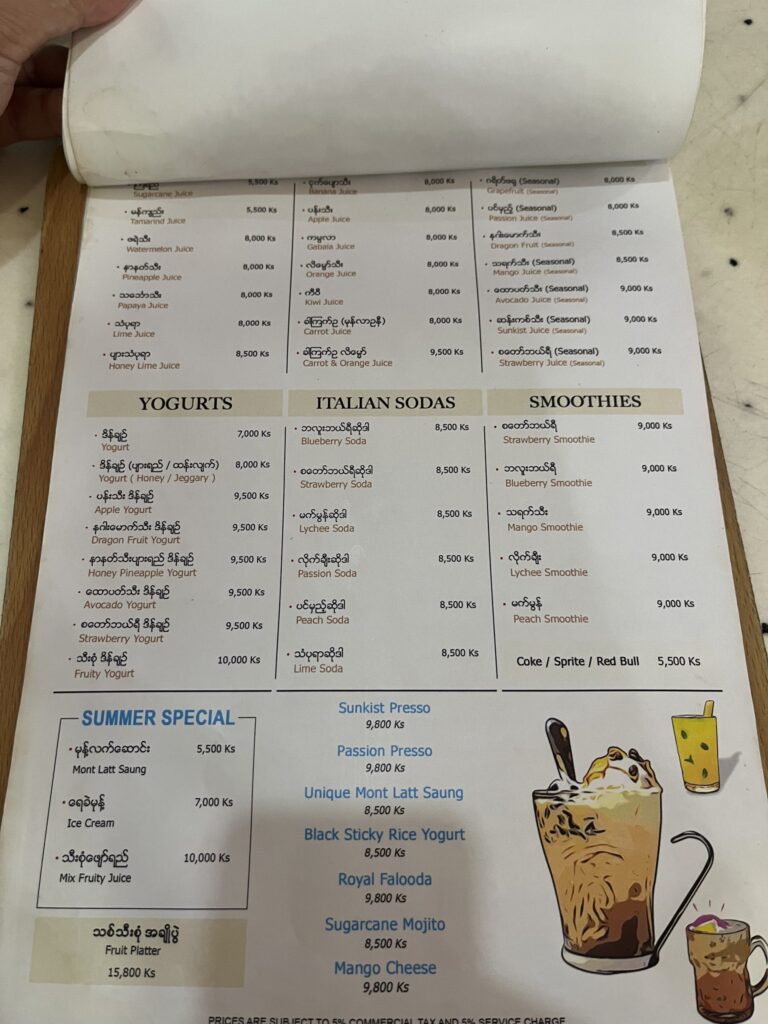 5,500 Ks
Sugarcane Juice
• မန်ကျည်း 5,500 Ks
Tamarind Juice
• ဖရဲသီး 8,000 Ks
Watermelon Juice
• နာနတ်သီး 8,000 Ks
Pineapple Juice
• သင်္ဘောသီး 8,000 Ks
Papaya Juice
• သံပုရာ 8,000 Ks
Lime Juice
• ပျားသံပုရာ 8,500 Ks
Honey Lime Juice
• ငှက်ပျောသီး 8,000 Ks
Banana Juice
• ပန်းသီး 8,000 Ks
Apple Juice
• ကမ္ဗလာ 8,000 Ks
Gabala Juice
• လိမ္မော်သီး 8,000 Ks
Orange Juice
• ကီဝီ 8,000 Ks
Kiwi Juice
• ခါကြက်ဥ (မုန်လာဥနီ) 8,000 Ks
Carrot Juice
• ခါကြက်ဥ လိမ္မော် 9,500 Ks
Carrot & Orange Juice
• ဂရိတ်ဖရု (Seasonal) 8,000 Ks
Grapefruit (Seasonal)
• ပင်မှည့် (Seasonal) 8,000 Ks
Passion Juice (Seasonal)
• နဂါးမောက်သီး 8,500 Ks
Dragon Fruit (Seasonal)
• သရက်သီး (Seasonal) 8,500 Ks
Mango Juice (Seasonal)
• ထောပတ်သီး (Seasonal) 9,000 Ks
Avocado Juice (Seasonal)
• ဆန်းကစ်သီး (Seasonal) 9,000 Ks
Sunkist Juice (Seasonal)
• စတော်ဘယ်ရီ (Seasonal) 9,000 Ks
Strawberry Juice (Seasonal)
YOGURTS
• ဒိန်ချဉ် 7,000 Ks
Yogurt
• ဒိန်ချဉ် (ပျားရည် / ထန်းလျက်) 8,000 Ks
Yogurt ( Honey / Jeggary )
• ပန်းသီး ဒိန်ချဉ် 9,500 Ks
Apple Yogurt
• နဂါးမောက်သီး ဒိန်ချဉ် 9,500 Ks
Dragon Fruit Yogurt
• နာနတ်သီးပျားရည် ဒိန်ချဉ် 9,500 Ks
Honey Pineapple Yogurt
• ထောပတ်သီး ဒိန်ချဉ် 9,500 Ks
Avocado Yogurt
• စတော်ဘယ်ရီ ဒိန်ချဉ် 9,500 Ks
Strawberry Yogurt
• သီးစုံ ဒိန်ချဉ် 10,000 Ks
Fruity Yogurt
ITALIAN SODAS
• ဘလူးဘယ်ရီဆိုဒါ 8,500 Ks
Blueberry Soda
• စတော်ဘယ်ရီဆိုဒါ 8,500 Ks
Strawberry Soda
• မက်မွန်ဆိုဒါ 8,500 Ks
Lychee Soda
• လိုက်ချီးဆိုဒါ 8,500 Ks
Passion Soda
• ပင်မှည့်ဆိုဒါ 8,500 Ks
Peach Soda
• သံပုရာဆိုဒါ 8,500 Ks
Lime Soda
SMOOTHIES
• စတော်ဘယ်ရီ 9,000 Ks
Strawberry Smoothie
• ဘလူးဘယ်ရီ 9,000 Ks
Blueberry Smoothie
• သရက်သီး 9,000 Ks
Mango Smoothie
• လိုက်ချီး 9,000 Ks
Lychee Smoothie
• မက်မွန် 9,000 Ks
Peach Smoothie
Coke / Sprite / Red Bull 5,500 Ks
SUMMER SPECIAL
• မုန့်လက်ဆောင်း 5,500 Ks
Mont Latt Saung
• ရေခဲမုန့် 7,000 Ks
Ice Cream
• သီးစုံဖျော်ရည် 10,000 Ks
Mix Fruity Juice
သစ်သီးစုံ အချိုပွဲ
Fruit Platter
15,800 Ks
Sunkist Presso
9,800 Ks
Passion Presso
9,800 Ks
Unique Mont Latt Saung
8,500 Ks
Black Sticky Rice Yogurt
8,500 Ks
Royal Falooda
9,800 Ks
Sugarcane Mojito
8,500 Ks
Mango Cheese
9,800 Ks
PRICES ARE SUBJECT TO 5% COMMERCIAL TAX AND 5% SERVICE CHARGE